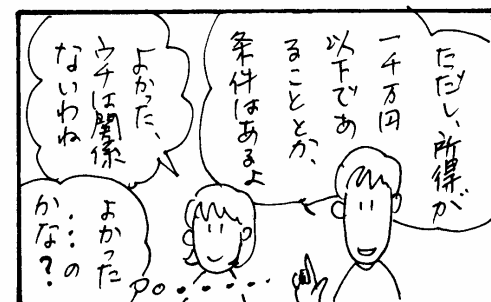 ただし、所得が
一千万円
以下であ
ることとか、
条件はあるよ
よかった、
ウチは関係
ないわね
よかった
…の
かな？